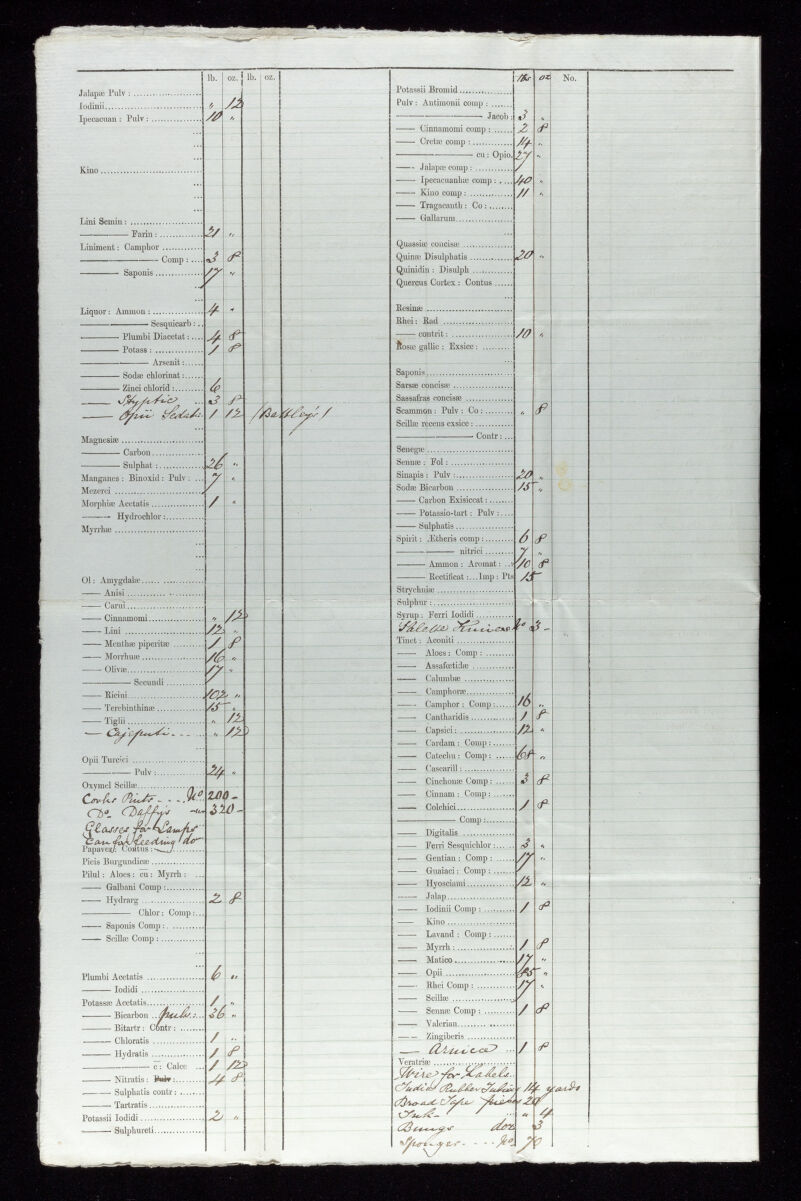 lb. oz. lb. oz.
Jalapæ Pulv :
Iodinii „ 12
Ipecacuan : Pulv : 10 „
Kino
Lini Semin :
——— Farin : 21 „
Liniment : Camphor
——— Comp : 3 8
——— Saponis 17 „
Liquor : Ammon : 4 „
——— Sesquicarb :
——— Plumbi Diacetat : 4 8
——— Potass : 1 8
——— Arsenit :
——— Sodæ chlorinat :
——— Zinci chlorid : 6
— Styptic 3 8
— Opii Sedat: 1 12 (Battley's)
Magnesiæ
——— Carbon
——— Sulphat : 26 „
Manganes : Binoxid : Pulv : 7 „
Mezerei
Morphiæ Acetatis 1 „
——— Hydrochlor :
Myrrhæ
Ol : Amygdalæ
—— Anisi
—— Carui
—— Cinnamomi „ 12
—— Lini 12 „
—— Menthæ piperitæ 1 8
—— Morrhuæ 16 „
—— Olivæ 17 „
——— Secundi
—— Ricini 102 „
—— Terebinthinæ 15 „
—— Tiglii „ 12
— Cajeputi „ 12
Opii Turcici
——— Pulv : 24 „
Oxymel Scillæ
Corks Pints - - - No 200 -
Do. Daffys - 320 -
Glasses for Lamps
Can for feeding do
Papaver: Contus :
Picis Burgundicæ
Pilul : Aloes : cu : Myrrh :
—— Galbani Comp :
—— Hydrarg 2 8
——— Chlor : Comp :
—— Saponis Comp :
—— Scillæ Comp :
Plumbi Acetatis 6 „
——— Iodidi
Potassæ Acetatis 1 „
——— Bicarbon pulv: 36 „
——— Bitartr : Contr :
——— Chloratis 1 „
——— Hydratis 1 8
——— c : Calce 1 12
——— Nitratis : Pulv : 4 8
——— Sulphatis contr :
——— Tartratis
Potassii Iodidi 2 „
——— Sulphureti
lbs oz No.
Potassii Bromid
Pulv : Antimonii comp :
——— Jacob : 3 „
—— Cinnamomi comp : 2 8
—— Cretæ comp : 14 „
——— cu : Opio. 27 „
—— Jalapæ comp :
—— Ipecacuanhæ comp : 40 „
—— Kino comp : 11 „
—— Tragacanth : Co :
—— Gallarum
Quassiæ concisæ
Quinæ Disulphatis 20 „
Quinidin : Disulph
Quercus Cortex : Contus
Resinæ
Rhei : Rad
—— contrit : 10 „
Rosæ gallic : Exsicc :
Saponis
Sarsæ concisæ
Sassafras concisæ
Scammon : Pulv : Co : „ 8
Scillæ recens exsicc :
——— Contr :
Senegæ
Sennæ : Fol :
Sinapis : Pulv : 20 „
Sodæ Bicarbon 15 „
—— Carbon Exisiccat :
—— Potassio-tart : Pulv :
—— Sulphatis
Spirit : Ætheris comp : 6 8
——— nitrici 7 „
——— Ammon : Aromat : 10 8
——— Rectificat : Imp : Pts 15
Strychniæ
Sulphur :
Syrup : Ferri Iodidi
No 3 -
Tinct : Aconiti
—— Aloes : Comp :
—— Assafœtidæ
—— Calumbæ
—— Camphoræ
—— Camphor : Comp : 16 „
—— Cantharidis 1 8
—— Capsici : 12 „
—— Cardam : Comp :
—— Catechu : Comp : 68 „
—— Cascarill :
—— Cinchonæ Comp : 3 8
—— Cinnam : Comp :
—— Colchici 1 8
——— Comp :
—— Digitalis
—— Ferri Sesquichlor : 3 „
—— Gentian : Comp : 17 „
—— Guaiaci : Comp :
—— Hyosciami 12 „
—— Jalap
—— Iodinii Comp : 1 8
—— Kino
—— Lavand : Comp :
—— Myrrh : 1 8
—— Matico 17 „
—— Opii 85 „
—— Rhei Comp : 17 „
—— Scillæ
—— Sennæ Comp : 1 8
—— Valerian
—— Zingiberis
— Arnica 1 8
Veratriæ
Wire for Labels
India Rubber Tubing 14 yards
Broad Tape pieces 20
Ink - „ 4
Bungs doz 3
Sponges - - - - No. 70